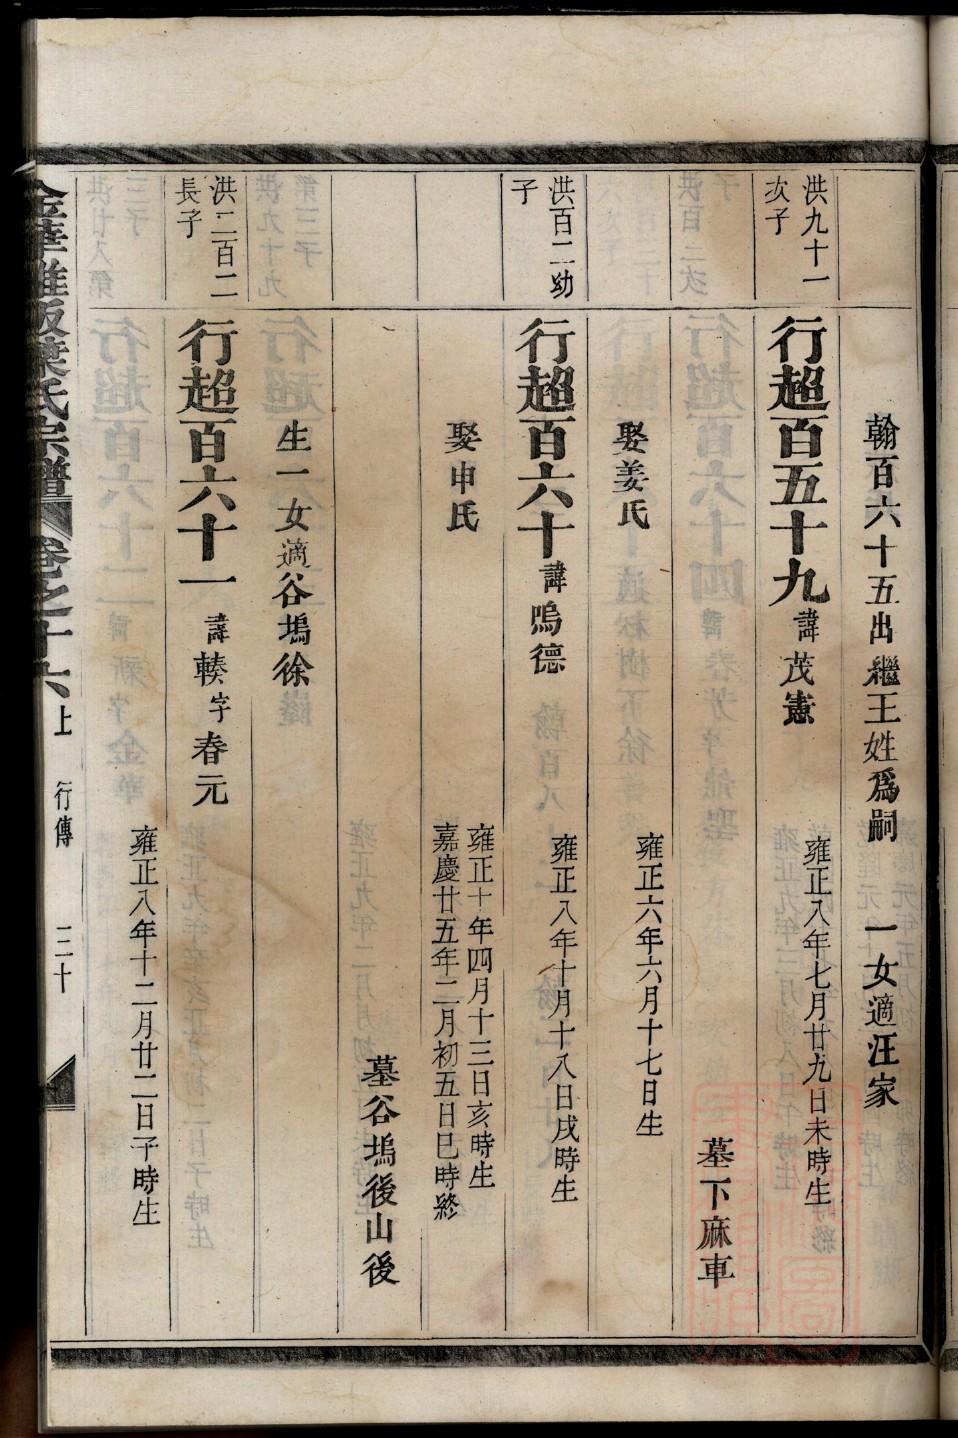 翰百六十五出繼王姓爲嗣 一女適汪家
洪九十一
次子
行超百五十九 諱茂憲 雍正八年七月廿九日未時生
墓下麻車
娶姜氏 雍正六年六月十七日生
洪百二幼
子
行超百六十 諱鳴德 雍正八年十月十八日戌時生
娶申氏 雍正十年四月十三日亥時生
嘉慶廿五年二月初五日巳時終
墓谷塢後山後
生一女適谷塢徐
洪二百二
長子
行超百六十一 諱 字春元
雍正八年十二月廿二日子時生
葉氏宗譜 卷之十六上 行傳 三十